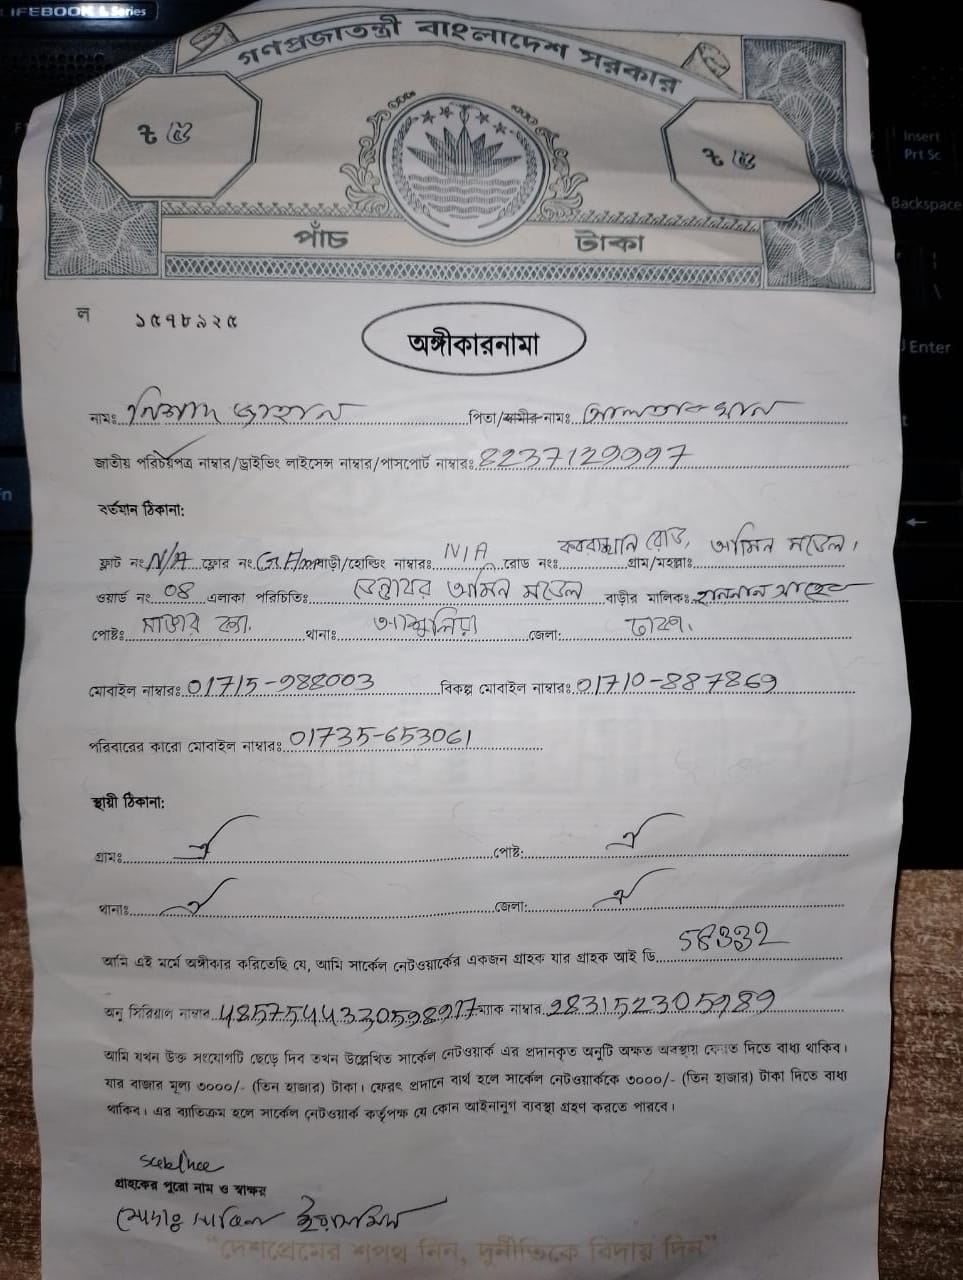 LIFEBOOK A Series
Insert
Prt Sc
Backspace
Enter
গণপ্রজাতন্ত্রী বাংলাদেশ সরকার
৳ ৫
৳ ৫
পাঁচ টাকা
ল ১৫৭৮৯২৫
অঙ্গীকারনামা
নামঃ জাহান পিতা/স্বামীর নামঃ খান
জাতীয় পরিচয়পত্র নাম্বার/ড্রাইভিং লাইসেন্স নাম্বার/পাসপোর্ট নাম্বারঃ 8237129997
বর্তমান ঠিকানা:
ফ্লাট নং N/A ফ্লোর নং বাড়ী/হোল্ডিং নাম্বারঃ N/A রোড নংঃ কবরস্থান রোড, গ্রাম/মহল্লাঃ আমিন মডেল।
ওয়ার্ড নং 08 এলাকা পরিচিতিঃ আমিন মডেল বাড়ীর মালিকঃ সাহেব
পোষ্টঃ থানাঃ আশুলিয়া জেলা: ঢাকা.
মোবাইল নাম্বারঃ 01715-988003 বিকল্প মোবাইল নাম্বারঃ 01710-887869
পরিবারের কারো মোবাইল নাম্বারঃ 01735-653061
স্থায়ী ঠিকানা:
গ্রামঃ ঐ পোষ্ট: ঐ
থানাঃ ঐ জেলা: ঐ
আমি এই মর্মে অঙ্গীকার করিতেছি যে, আমি সার্কেল নেটওয়ার্কের একজন গ্রাহক যার গ্রাহক আই ডি 58332
অনু সিরিয়াল নাম্বার ম্যাক নাম্বার 283152305989
আমি যখন উক্ত সংযোগটি ছেড়ে দিব তখন উল্লেখিত সার্কেল নেটওয়ার্ক এর প্রদানকৃত অনুটি অক্ষত অবস্থায় ফেরত দিতে বাধ্য থাকিব।
যার বাজার মূল্য ৩০০০/- (তিন হাজার) টাকা। ফেরৎ প্রদানে ব্যর্থ হলে সার্কেল নেটওয়ার্ককে ৩০০০/- (তিন হাজার) টাকা দিতে বাধ্য
থাকিব। এর ব্যতিক্রম হলে সার্কেল নেটওয়ার্ক কর্তৃপক্ষ যে কোন আইনানুগ ব্যবস্থা গ্রহণ করতে পারবে।
গ্রাহকের পুরো নাম ও স্বাক্ষর
মোসাঃ ইয়াসমিন
"দেশপ্রেমের শপথ নিন, দুর্নীতিকে বিদায় দিন"